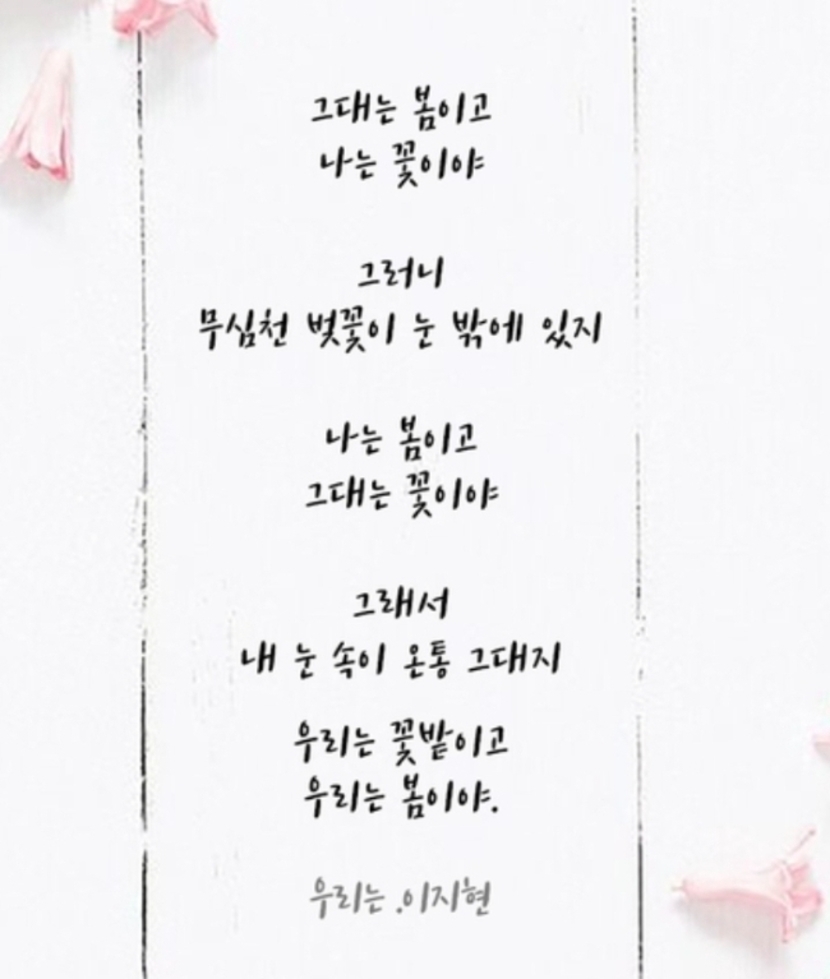 그대는 봄이고
나는 꽃이야
그러니
무심천 벚꽃이 눈 밖에 있지
나는 봄이고
그대는 꽃이야
그래서
내 눈 속이 온통 그대지
우리는 꽃밭이고
우리는 봄이야.
우리는 .이지현